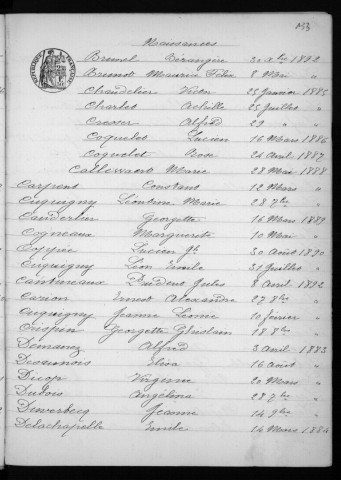 153
Naissances
RÉPUBLIQUE FRANÇAISE
Brunel Bérangère 31 Xbre 1882
Brunot Maurice Félix 8 Mai "
Chandelier Victor 25 Janvier 1885
Charles Achille 25 Juillet "
Cresser Alfred 29 " "
Coquelet Lucien 16 Mars 1886
Coquelet Rose 24 Avril 1887
Callewaert Marie 28 Mai 1888
Carpent Constant 12 Mars "
Cupuigny Léontine Marie 28 7bre "
Cauderlier Georgette 16 Mars 1889
Cogneaux Marguerite 10 Mai "
Coppée Lucien Jh 30 Août 1890
Cupuigny Léon Emile 31 Juillet "
Cantineaux Prudent Jules 8 Avril 1892
Carion Ernest Alexandre 27 8bre "
Cupuigny Jeanne Léonie 10 février "
Crispin Georgette Ghislain 18 8bre "
Demanez Alfred 3 Avril 1883
Desaunois Elisa 16 Août "
Decop Virginie 20 Mars "
Dubois Angélina 28 7bre "
Deverbecq Jeanne 14 9bre "
Delachapelle Emile 14 Mars 1884